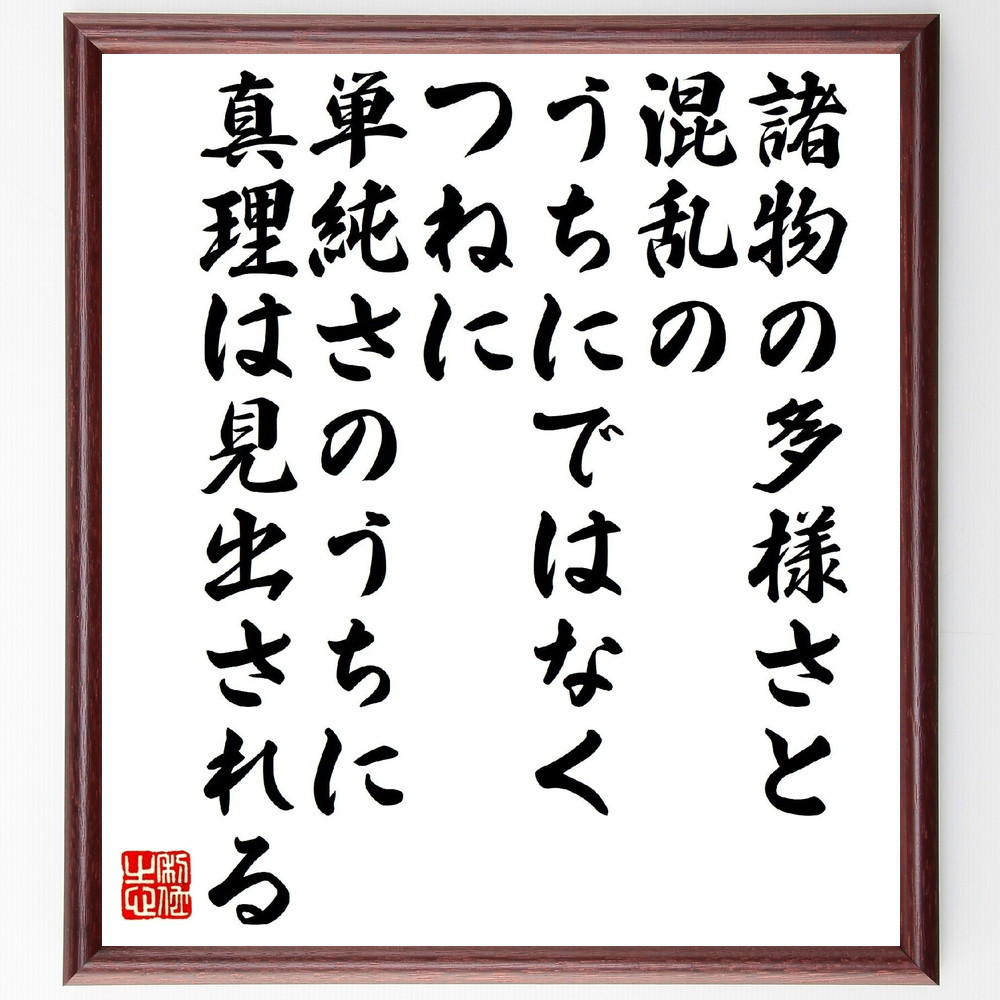 諸物の多様さと
混乱の
うちにではなく
つねに
単純さのうちに
真理は見出される